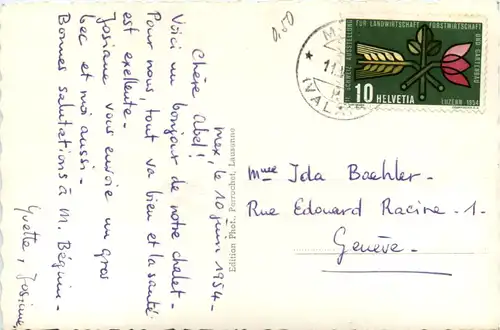 Mex, le 10 juin 1954.
Chère Ida!
Voici un bonjour de notre chalet.
Pour nous, tout va bien et la santé
est exellente.
Josiane vous envoie un gros
bec et moi aussi.
Bonnes salutations à M. Béguin.
Yvette, Josiane
Edition Phot. Perrochet, Lausanne
0,50
11.
(VALAIS)
SCHWEIZ. AUSSTELLUNG FÜR LANDWIRTSCHAFT FORSTWIRTSCHAFT UND GARTENBAU
LUZERN 1954
10 HELVETIA
Mme Ida Baehler.
Rue Edouard Racine. 1.
Genève.